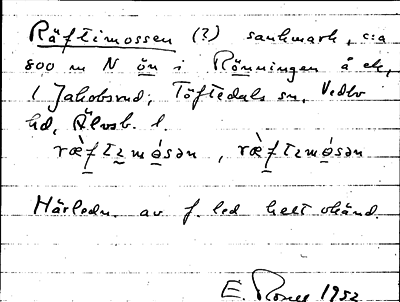 Räftimossen (?) sankmark, c:a
800 m N ön i Rönningen å ek,
1 Jakobsrud, Töftedals sn, Vedbo
hd, Älvsb. l.
ræ̀ftɪmósən, ræ̀ftɪmósən
Härledn. av f. led helt okänd.
E. 1952